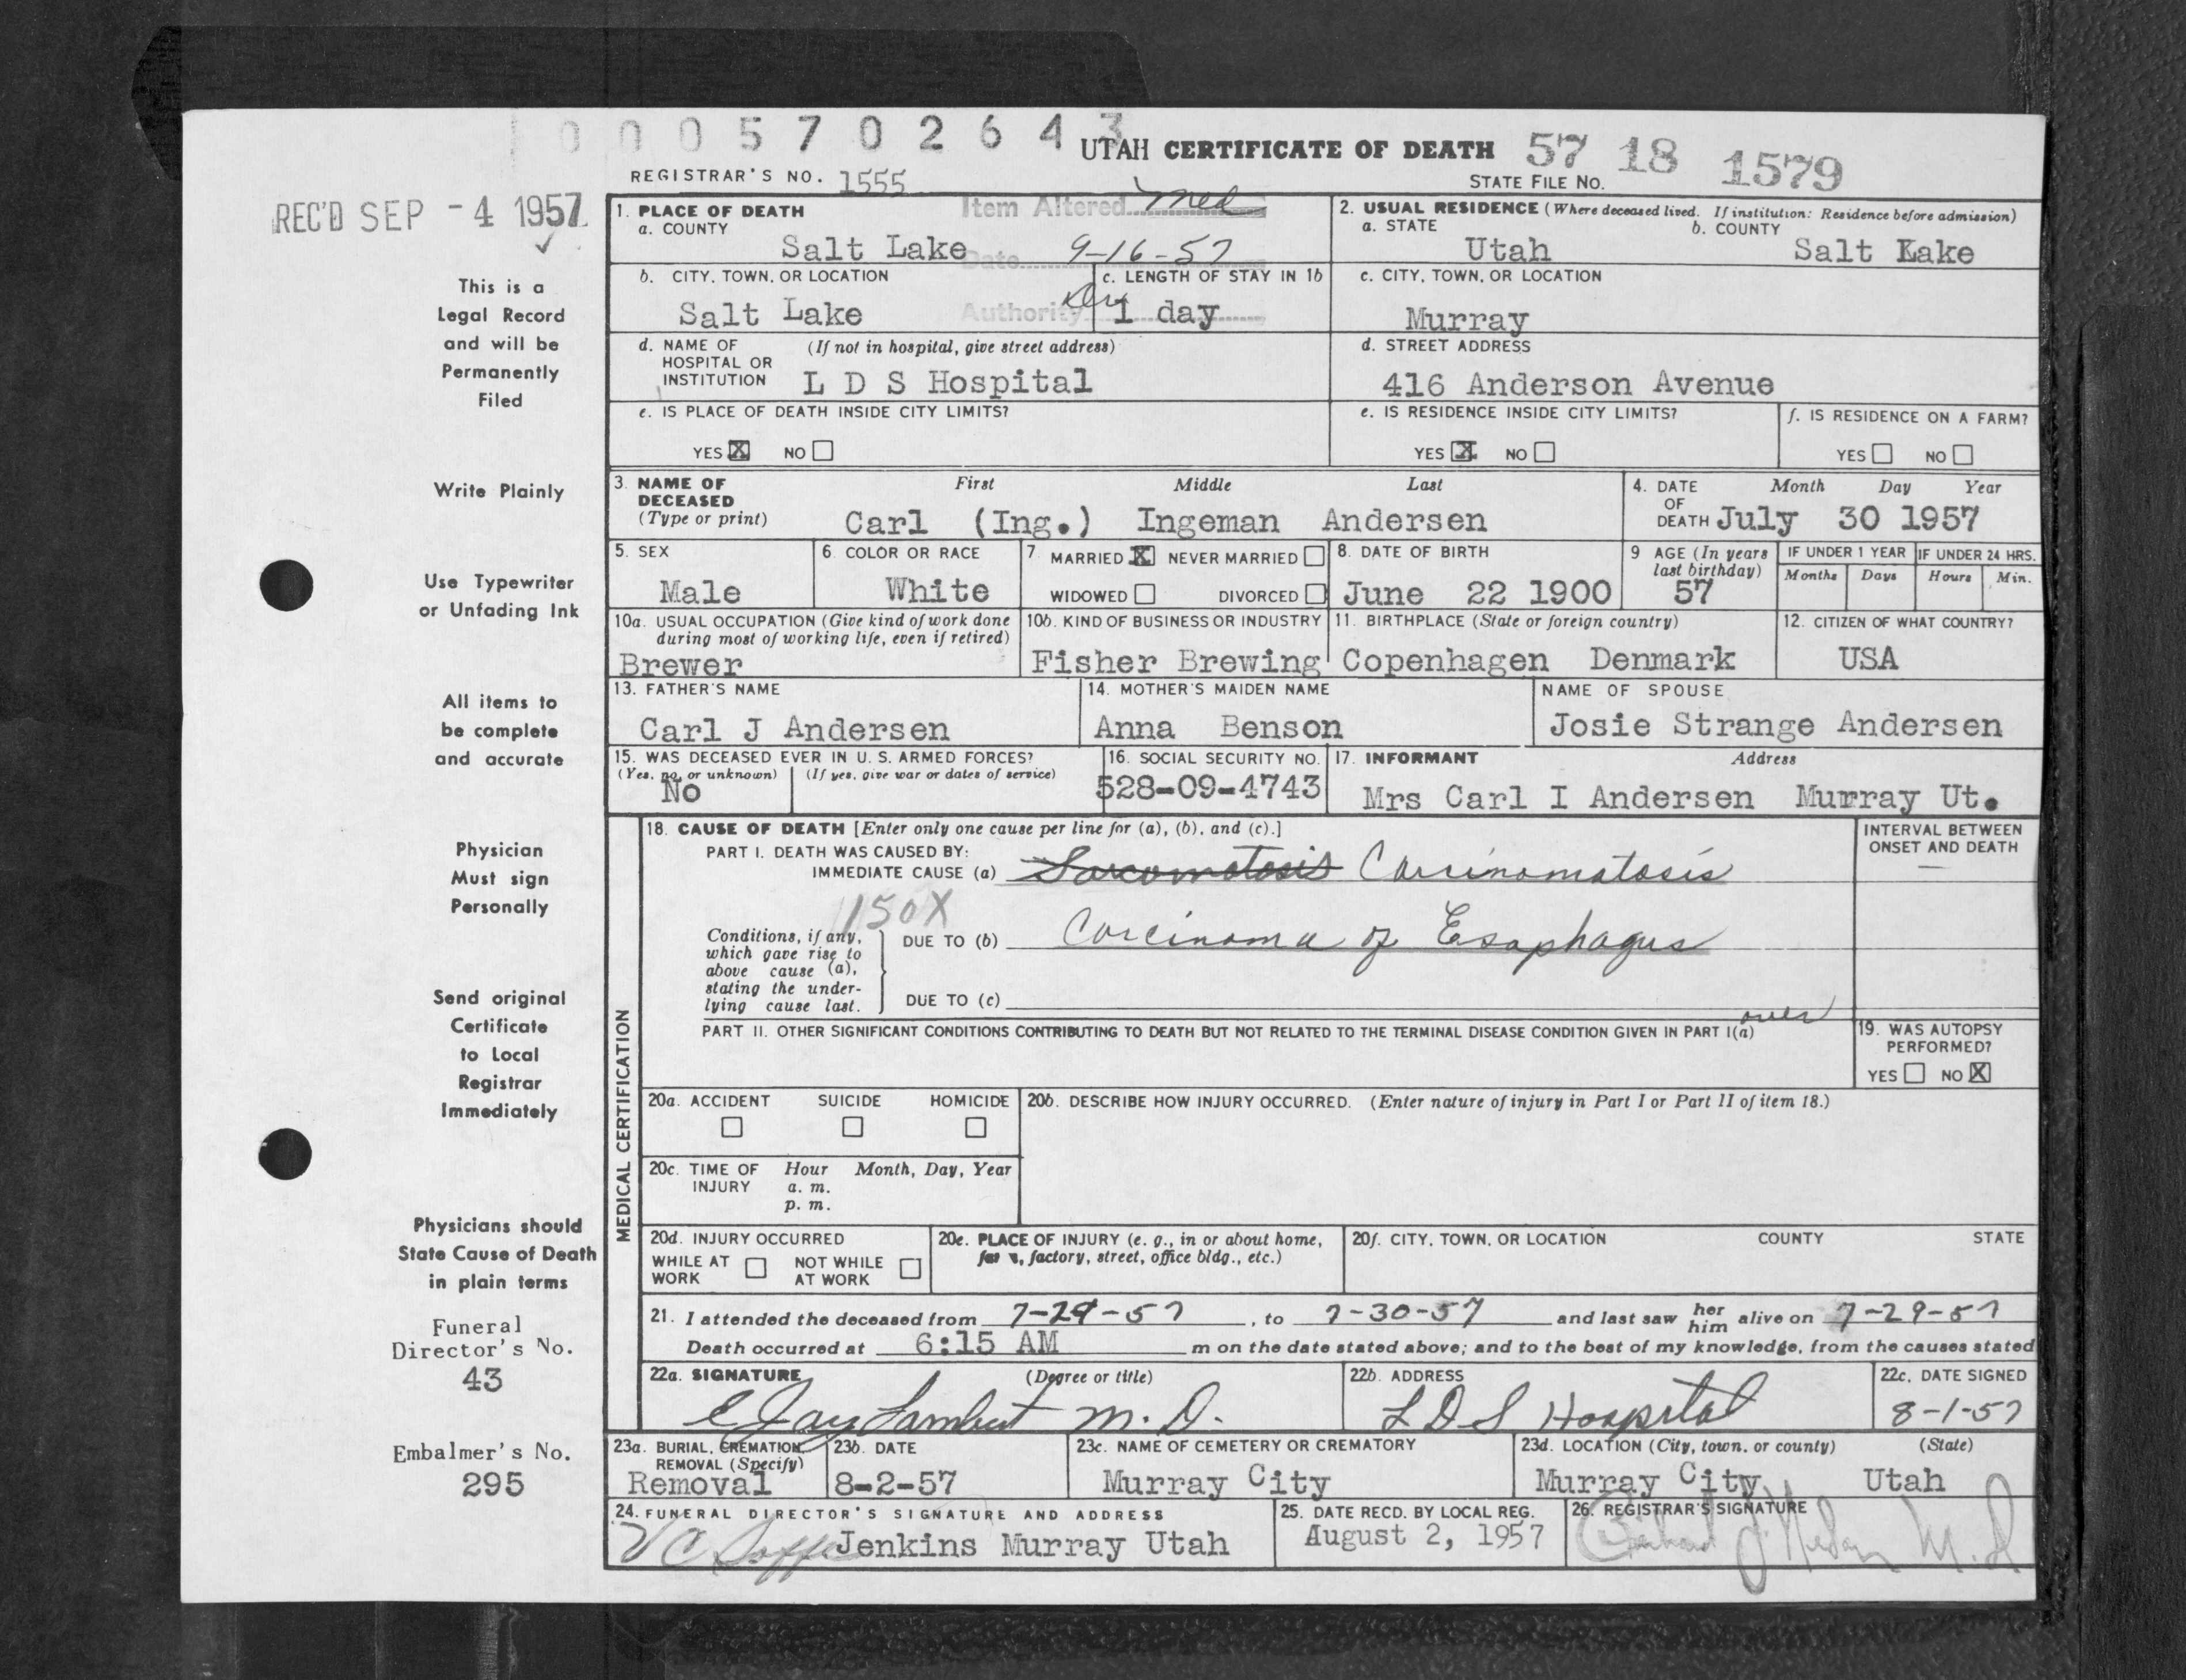 0005702643
UTAH CERTIFICATE OF DEATH 57 18 1579
REGISTRAR'S NO. 1555 STATE FILE NO.
REC'D SEP -4 1957
✓
This is a
Legal Record
and will be
Permanently
Filed
Write Plainly
Use Typewriter
or Unfading Ink
All items to
be complete
and accurate
Physician
Must sign
Personally
Send original
Certificate
to Local
Registrar
Immediately
Physicians should
State Cause of Death
in plain terms
Funeral
Director's No.
43
Embalmer's No.
295
1. PLACE OF DEATH
a. COUNTY
Salt Lake
Item Altered Med
Date 9-16-57
Authority Dr
2. USUAL RESIDENCE (Where deceased lived. If institution: Residence before admission)
a. STATE b. COUNTY
Utah Salt Lake
b. CITY, TOWN, OR LOCATION c. LENGTH OF STAY IN 1b
Salt Lake 1 day
c. CITY, TOWN, OR LOCATION
Murray
d. NAME OF HOSPITAL OR INSTITUTION (If not in hospital, give street address)
L D S Hospital
d. STREET ADDRESS
416 Anderson Avenue
e. IS PLACE OF DEATH INSIDE CITY LIMITS?
YES X NO
e. IS RESIDENCE INSIDE CITY LIMITS?
YES X NO
f. IS RESIDENCE ON A FARM?
YES NO
3. NAME OF DECEASED (Type or print) First Middle Last
Carl (Ing.) Ingeman Andersen
4. DATE OF DEATH Month Day Year
July 30 1957
5. SEX
Male
6. COLOR OR RACE
White
7. MARRIED X NEVER MARRIED
WIDOWED DIVORCED
8. DATE OF BIRTH
June 22 1900
9 AGE (In years last birthday)
57
IF UNDER 1 YEAR IF UNDER 24 HRS.
Months Days Hours Min.
10a. USUAL OCCUPATION (Give kind of work done during most of working life, even if retired)
Brewer
10b. KIND OF BUSINESS OR INDUSTRY
Fisher Brewing
11. BIRTHPLACE (State or foreign country)
Copenhagen Denmark
12. CITIZEN OF WHAT COUNTRY?
USA
13. FATHER'S NAME
Carl J Andersen
14. MOTHER'S MAIDEN NAME
Anna Benson
NAME OF SPOUSE
Josie Strange Andersen
15. WAS DECEASED EVER IN U. S. ARMED FORCES?
(Yes, no, or unknown) (If yes, give war or dates of service)
No
16. SOCIAL SECURITY NO.
528-09-4743
17. INFORMANT Address
Mrs Carl I Andersen Murray Ut.
MEDICAL CERTIFICATION
18. CAUSE OF DEATH [Enter only one cause per line for (a), (b), and (c).]
PART I. DEATH WAS CAUSED BY:
IMMEDIATE CAUSE (a) Sarcomatosis Carcinomatosis
INTERVAL BETWEEN
ONSET AND DEATH
—
150X
Conditions, if any, which gave rise to above cause (a), stating the underlying cause last.
DUE TO (b) Carcinoma of Esophagus
DUE TO (c)
over
PART II. OTHER SIGNIFICANT CONDITIONS CONTRIBUTING TO DEATH BUT NOT RELATED TO THE TERMINAL DISEASE CONDITION GIVEN IN PART I(a)
19. WAS AUTOPSY PERFORMED?
YES NO X
20a. ACCIDENT SUICIDE HOMICIDE
20b. DESCRIBE HOW INJURY OCCURRED. (Enter nature of injury in Part I or Part II of item 18.)
20c. TIME OF INJURY Hour Month, Day, Year
a. m.
p. m.
20d. INJURY OCCURRED
WHILE AT WORK NOT WHILE AT WORK
20e. PLACE OF INJURY (e. g., in or about home, farm, factory, street, office bldg., etc.)
20f. CITY, TOWN, OR LOCATION COUNTY STATE
21. I attended the deceased from 7-29-57, to 7-30-57 and last saw her him alive on 7-29-57
Death occurred at 6:15 AM m on the date stated above; and to the best of my knowledge, from the causes stated
22a. SIGNATURE (Degree or title)
C Jay Lambert M.D.
22b. ADDRESS
LDS Hospital
22c. DATE SIGNED
8-1-57
23a. BURIAL, CREMATION, REMOVAL (Specify)
Removal
23b. DATE
8-2-57
23c. NAME OF CEMETERY OR CREMATORY
Murray City
23d. LOCATION (City, town, or county) (State)
Murray City Utah
24. FUNERAL DIRECTOR'S SIGNATURE AND ADDRESS
Jenkins Murray Utah
25. DATE RECD. BY LOCAL REG.
August 2, 1957
26. REGISTRAR'S SIGNATURE
M.D.